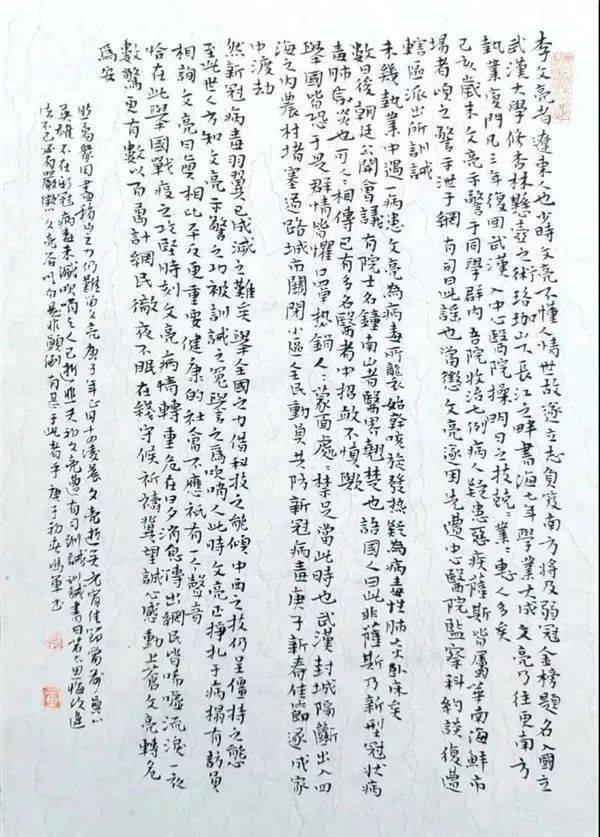 李文亮者遼東人也少時文亮不懂人情世故遂立志負笈南方將及弱冠金榜題名入國立
武漢大學修杏林懸壺之術珞珈山下長江之畔書海七年學業大成文亮乃往更南方
執業廈門凡三年復回武漢入中心醫院操明目之技兢兢業業惠人多矣
己亥歲末文亮示警于同學群內吾院收治七例病人疑患惡疾薩斯皆屬華南海鮮市
場者頃之警示泄于網有司曰此謠也當懲文亮遂因先遭中心醫院監察科約談復遭
轄區派出所訓誡
未幾執業中遇一病患文亮為病毒所襲始幹咳旋發熱疑為病毒性肺炎臥床矣
數日後朝廷公開會議有院士名鐘南山者醫界翹楚也語國人曰此非薩斯乃新型冠狀病
毒肺炎也可人人相傳已有多名醫者中招敢不慎歟
舉國皆恐于是群情皆懼口罩熱銷人人蒙面處處禁足當此時也武漢封城隔斷出入四
海之內農村堵塞通路城市關閉小區全民動員共防新冠病毒庚子新春佳節遂成家
中渡劫
然新冠病毒羽翼已成滅之難矣舉全國之力借科技之能傾中西之技仍呈僵持之態
至此世人方知文亮示警之功被訓誡之冤譽之為吹哨人此時文亮正掙扎于病榻有訪員
相詢文亮曰真相比平反更重要健康的社會不應祇有一个聲音
恰在此舉國戰疫之攻堅時刻文亮病情轉重危在旦夕消息傳出網民皆唏噓流淚一夜
數驚更有數以百萬計網民徹夜不眠在綫守候祈禱冀望誠心感動上蒼文亮轉危
為安
然萬眾回晝移山之力仍難留文亮庚子年正月十四淩晨文亮逝矣元宵佳節當前
英雄不在新冠病毒未滅吹哨之人已逝悲夫初文亮遭有司訓誡訓誡書曰若不思悔改違
法不已必有嚴懲文亮答以明白悲非顛倒有甚于此者乎庚子初